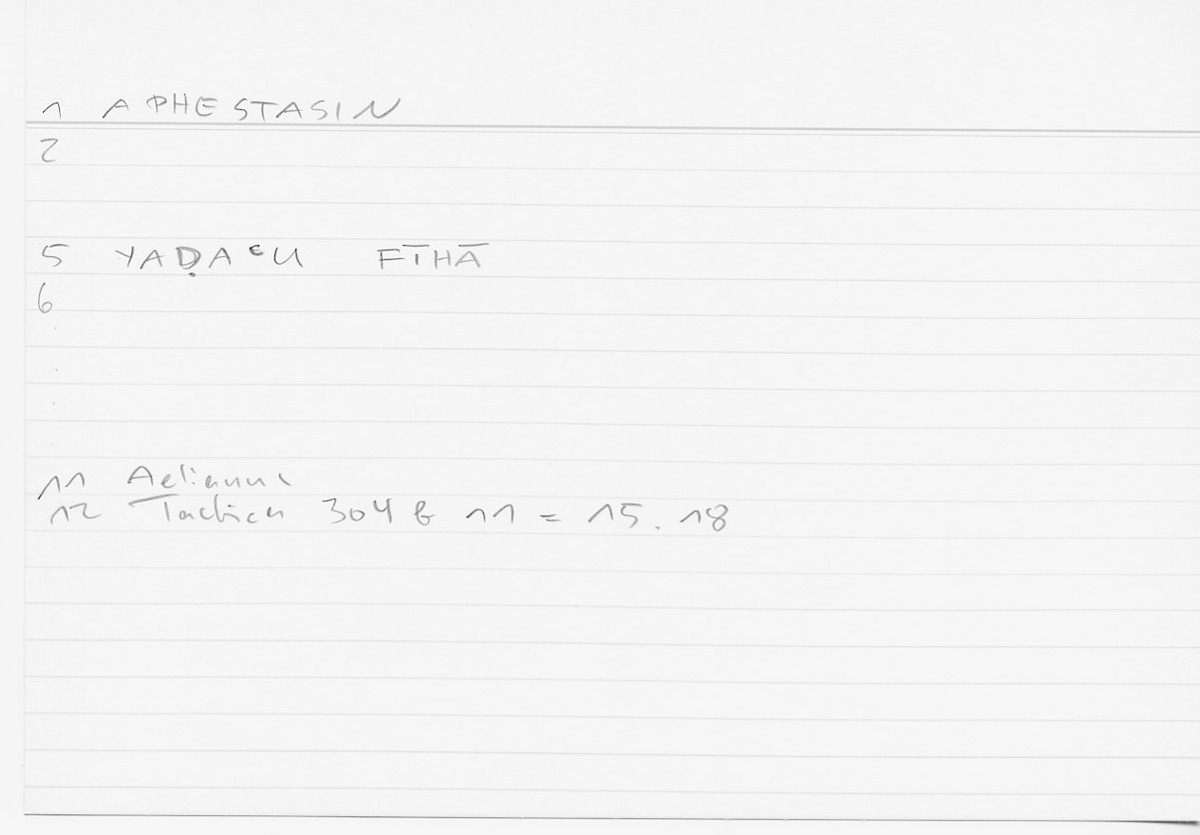 1 APHESTASIN
2
5 YAḌAʿU FĪHĀ
6
11 Aelianus
12 Tactica 304 b 11 = 15.18